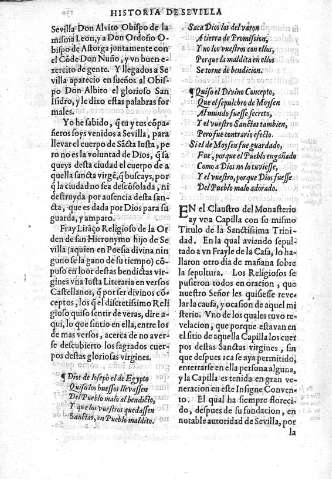 HISTORIA DE SEVILLA
Sevilla Don Alvito Obispo de la
misma Leon, y a Don Ordoño O-
bispo de Astorga juntamente con
el Cōde Don Nuño, y vn buen e-
xercito de gente. Y llegados a Se
villa aparecio en sueños al Obis-
po Don Albito el glorioso San
Isidro, y le dixo estas palabras for
males.
Yo he sabido, q̄ tu y tus cōpa-
ñeros soys venidos a Sevilla, para
llevar el cuerpo de Sāta Iusta, pe-
ro no es la voluntad de Dios, q̄ sa
queys desta ciudad el cuerpo de a
questa sancta virgē, q̄ buscays, por
q̄ la ciudad no sea descōsolada, ni
destroyda por ausencia desta san-
cta, que es dada por Dios para su
guarda, y amparo.
Fray Liraço Religioso de la Or
den de san Hieronymo hijo de Se
villa (aquien en Poesia divina nin
guno se la gano de su tiempo) cō-
puso en loor destas bendistas vir-
gines vna Iusta Literaria en versos
Castellanos, q̄ por ser divinos cō-
ceptos, los q̄l discretissimo Reli
gioso quiso sentir de veras, dire a-
qui, lo que sintio en ella, entre los
de mas versos, acerca de no aver-
se descubierto los sagrados cuer-
pos destas gloriosas virgines.
¶ Dios de Ioseph el de Egypto
Quiso los huessos llevassen
Del Pueblo malo al bendicto,
Y que los vuestros quedassen
Sanctas, en Pueblo maldito.
Saca Dios los del varon
A tierra de Promission,
Y no los vuestros con ellos,
Porque la maldita en ellos
Se torne de bendicion.
¶ Quiso el Divino Concepto,
Que el sepulchro de Moysen
Al mundo fuesse secreto,
Y el vuestro Sanctas tambien,
Pero fue contrario efecto.
Si el de Moysen fue guardado,
Fue, porque el Pueblo engañado
Como a Dios no lo tuviesse,
Y el vuestro, porque Dios fuesse
Del Pueblo malo adorado.
EN el Claustro del Monasterio
ay vna Capilla con su mismo
Titulo de la Sanctissima Trini-
dad. En la qual aviendo sepul-
tado a vn Frayle de la Casa, lo ha-
llaron otro dia de mañana sobre
la sepultura. Los Religiosos se
pusieron todos en oracion, que
nuestro Señer les quisiesse reve-
lar la causa, y ocasion de aquel mi
sterio. Vno de los quales tuvo re-
velacion, que porque estavan en
el sitio de aquella Capilla los cuer
pos destas Sanctas virgines, sin
que despues aca se aya permitido,
enterrarse en ella persona alguna,
y la Capilla es tenida en gran ve-
neracion en este Insigne Conven-
to. El qual ha siempre floreci-
do, despues de su fundacion, en
notable autoridad de Sevilla, por
la